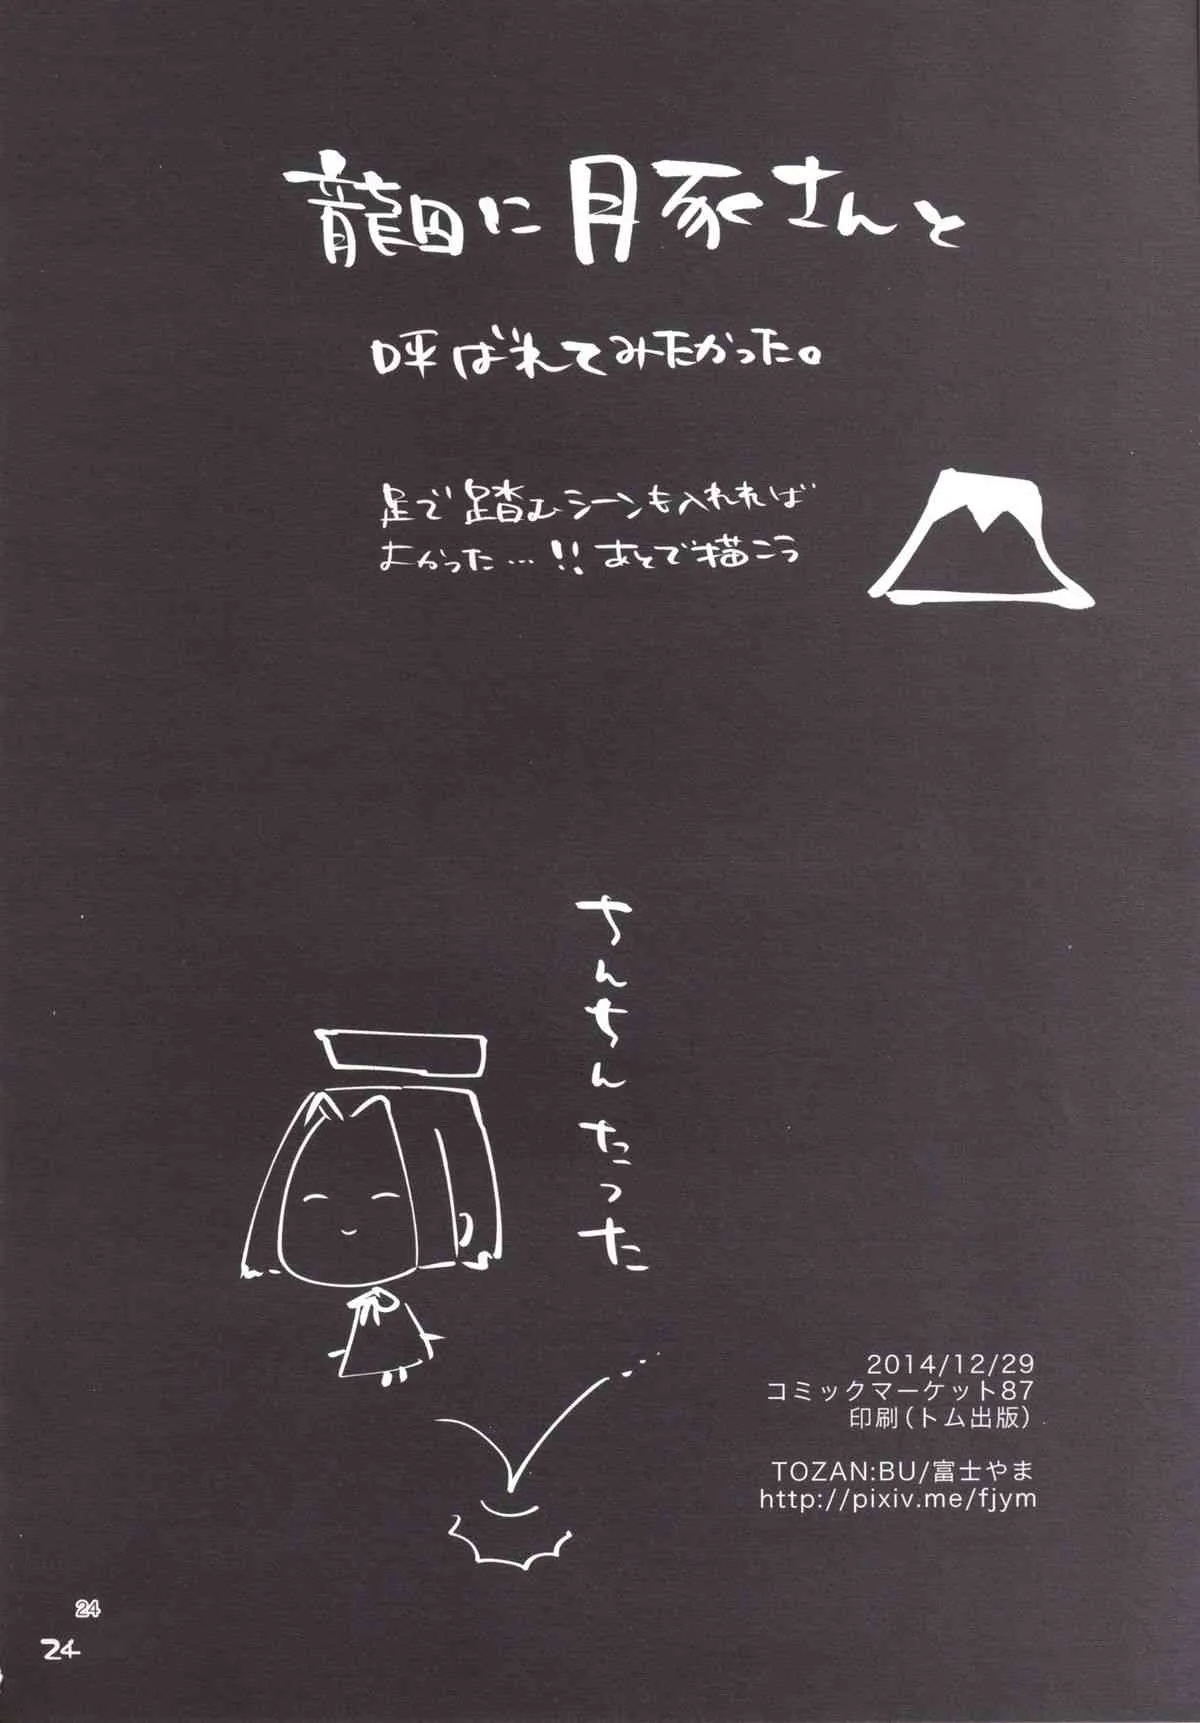 龍田に月豚さんと
呼ばれてみたかった。
足で踏むシーンも入れれば
よかった…!! あとで描こう
ちんちんたった
2014/12/29
コミックマーケット87
印刷(トム出版)
TOZAN:BU/富士やま
http://pixiv.me/fjym
24
24